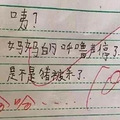 咦？
妈妈的呼噜声停了
是不是猪被杀了
哈……